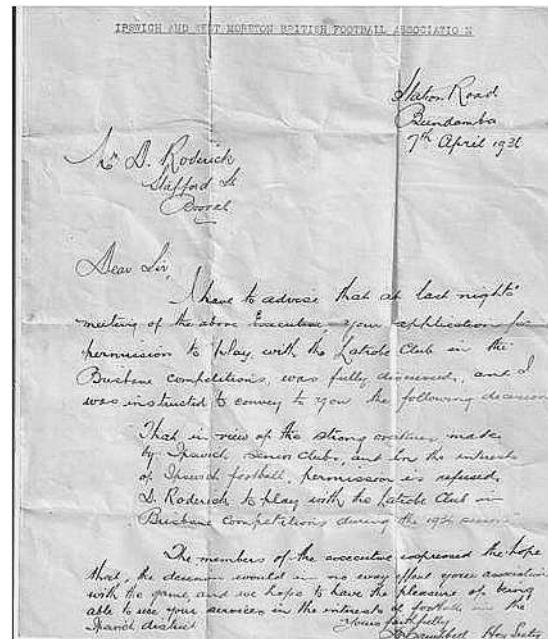 IPSWICH AND WEST MORETON BRITISH FOOTBALL ASSOCIATION
Station Road
Bundamba
7th April 1936
Mr D. Roderick
Stafford St
Booval
Dear Sir,
I have to advise that at last nights'
meeting of the above Executive, your application for
permission to play with the Latrobe Club in the
Brisbane competitions, was fully discussed, and I
was instructed to convey to you the following decision
That in view of the strong made
by Ipswich senior clubs, and in the interests
of Ipswich football, permission is refused
D. Roderick to play with the Latrobe Club in
Brisbane competitions during the 1936 season
The members of the executive expressed the hope
that, the decision would in no way effect your association
with the game, and we hope to have the pleasure of being
able to use your services in the interests of football in the
Ipswich district
Yours faithfully
Hon Secty